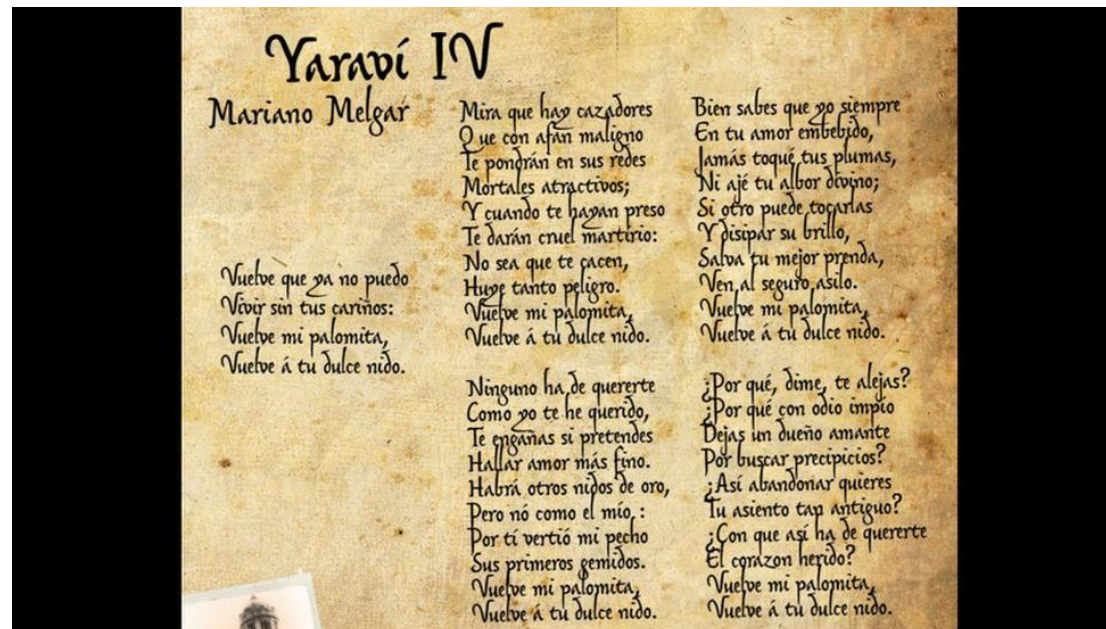 Yaraví IV
Mariano Melgar
Vuelve que ya no puedo
Vivir sin tus cariños:
Vuelve mi palomita,
Vuelve á tu dulce nido.
Mira que hay cazadores
Que con afán maligno
Te pondrán en sus redes
Mortales atractivos;
Y cuando te hayan preso
Te darán cruel martirio:
No sea que te cacen,
Huye tanto peligro.
Vuelve mi palomita,
Vuelve á tu dulce nido.
Ninguno ha de quererte
Como yo te he querido,
Te engañas si pretendes
Hallar amor más fino.
Habrá otros nidos de oro,
Pero nó como el mío :
Por tí vertió mi pecho
Sus primeros gemidos.
Vuelve mi palomita,
Vuelve á tu dulce nido.
Bien sabes que yo siempre
En tu amor embebido,
Jamás toqué tus plumas,
Ni ajé tu albor divino;
Si otro puede tocarlas
Y disipar su brillo,
Salva tu mejor prenda,
Ven al seguro asilo.
Vuelve mi palomita,
Vuelve á tu dulce nido.
¿Por qué, dime, te alejas?
¿Por qué con odio impío
Dejas un dueño amante
Por buscar precipicios?
¿Así abandonar quieres
Tu asiento tan antiguo?
¿Con que así ha de quererte
El corazon herido?
Vuelve mi palomita,
Vuelve á tu dulce nido.